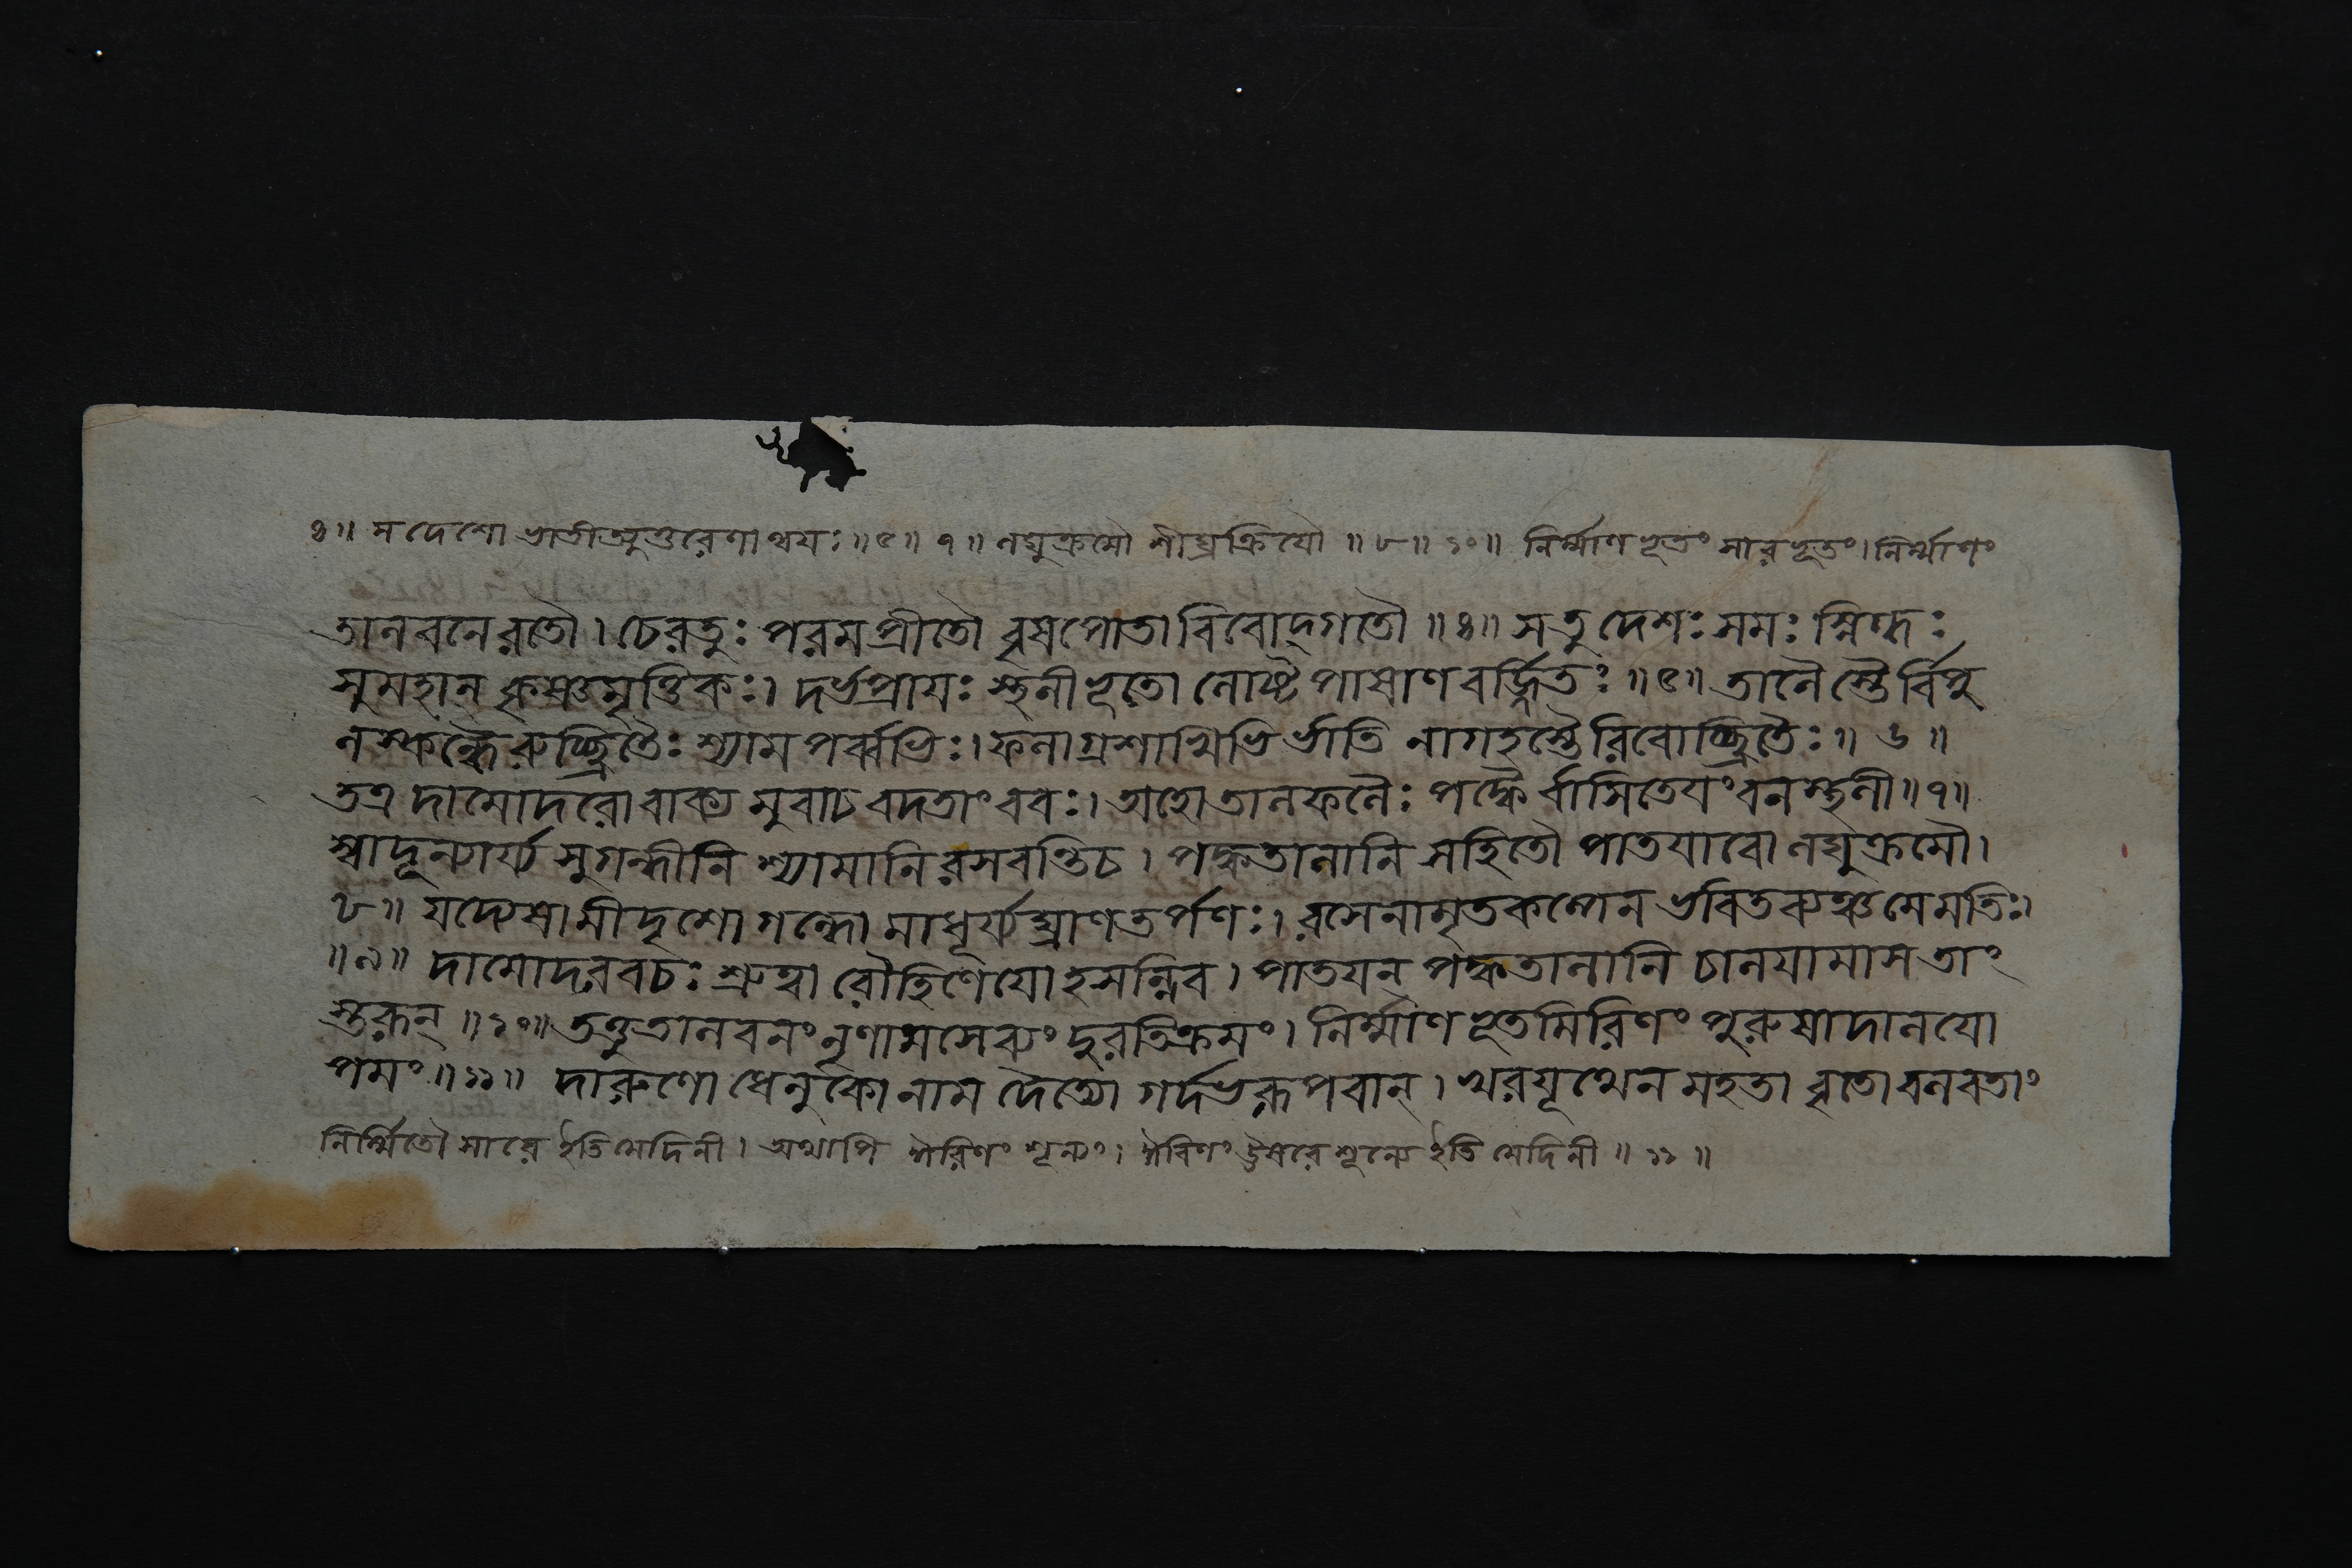 ৪॥ স দেশো ভাতীত্যুত্তরেণান্বয়ঃ॥৫॥ ৭॥ লঘুক্রমৌ শীঘ্রক্রিয়ৌ ॥৮॥ ১০॥ নির্ম্মাণভূতং সারভূতং। নির্ম্মাণং
তালবনে রতৌ। চেরতুঃ পরমপ্রীতৌ বৃষপোতাবিবোদ্গতৌ ॥৪॥ স তু দেশঃ সমঃ স্নিগ্ধঃ
সুমহান্ কৃষ্ণমৃত্তিকঃ। দর্ভপ্রায়ঃ স্থলীভূতো লোষ্টপাষাণবর্জ্জিতঃ ॥৫॥ তালৈস্তৈর্বিপু
লস্কন্ধৈরুচ্ছ্রিতৈঃ শ্যামপর্ব্বভিঃ। ফলাগ্রশাখিভির্ভাতি নাগহস্তৈরিবোচ্ছ্রিতৈঃ॥ ৬ ॥
তত্র দামোদরো বাক্যমুবাচ বদতাং বরঃ। অহো তালফলৈঃ পক্বৈর্বাসিতেয়ং বনস্থলী॥৭॥
স্বাদূন্যার্য্য সুগন্ধীনি শ্যামানি রসবন্তি চ। পক্বতালানি সহিতৌ পাতয়াবো লঘুক্রমৌ।
৮॥ যদ্যেষামীদৃশো গন্ধো মাধূর্য্যঘ্রাণতর্পণঃ। রসেনামৃতকল্পেন ভবিতব্যঞ্চ মে মতিঃ।
॥৯॥ দামোদরবচঃ শ্রুত্বা রৌহিণেয়ো হসন্নিব। পাতয়ন্ পক্বতালানি চালয়ামাস তাং
স্তরূন্ ॥১০॥ তত্তু তালবনং নৃণামসেব্যং দুরতিক্রমং। নির্ম্মাণভূতমিরিণং পুরুষাদালয়ো
পমং॥১১॥ দারুণো ধেনুকো নাম দৈত্যো গর্দভরূপবান্। খরযূথেন মহতা বৃতো বলবতাং
নির্ম্মিতৌ সারে ইতি মেদিনী। অথাপি ঐরিণং শূন্যং। ঐরিণং ঊষরে শূন্যে ইতি মেদিনী ॥ ১১ ॥